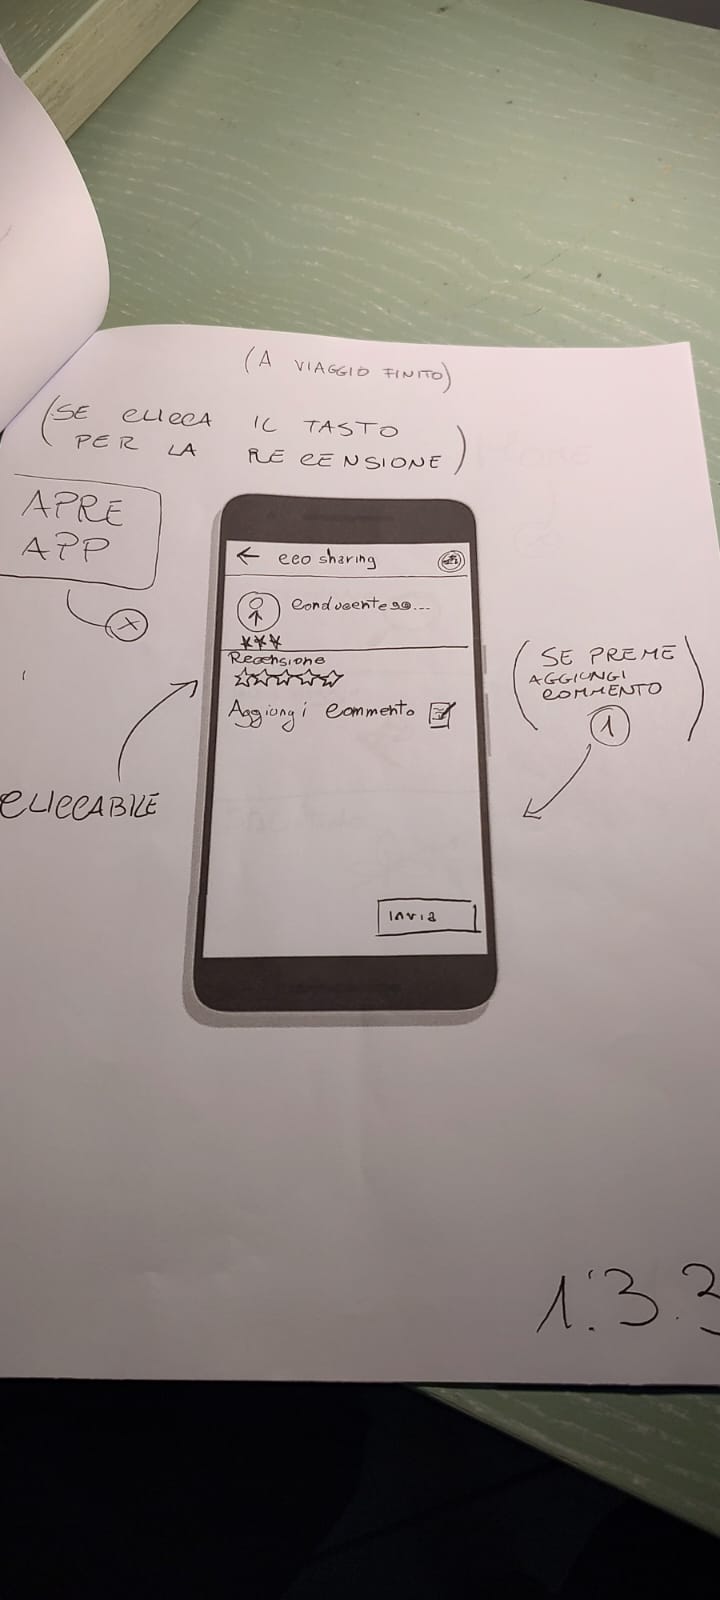 (A VIAGGIO FINITO)
(SE CLICCA IL TASTO
PER LA RECENSIONE)
APRE
APP
X
← eco sharing
Conducente90...
Recensione
Aggiungi Commento
Invia
CLICCABILE
(SE PREME
AGGIUNGI
COMMENTO)
1
1.3.3